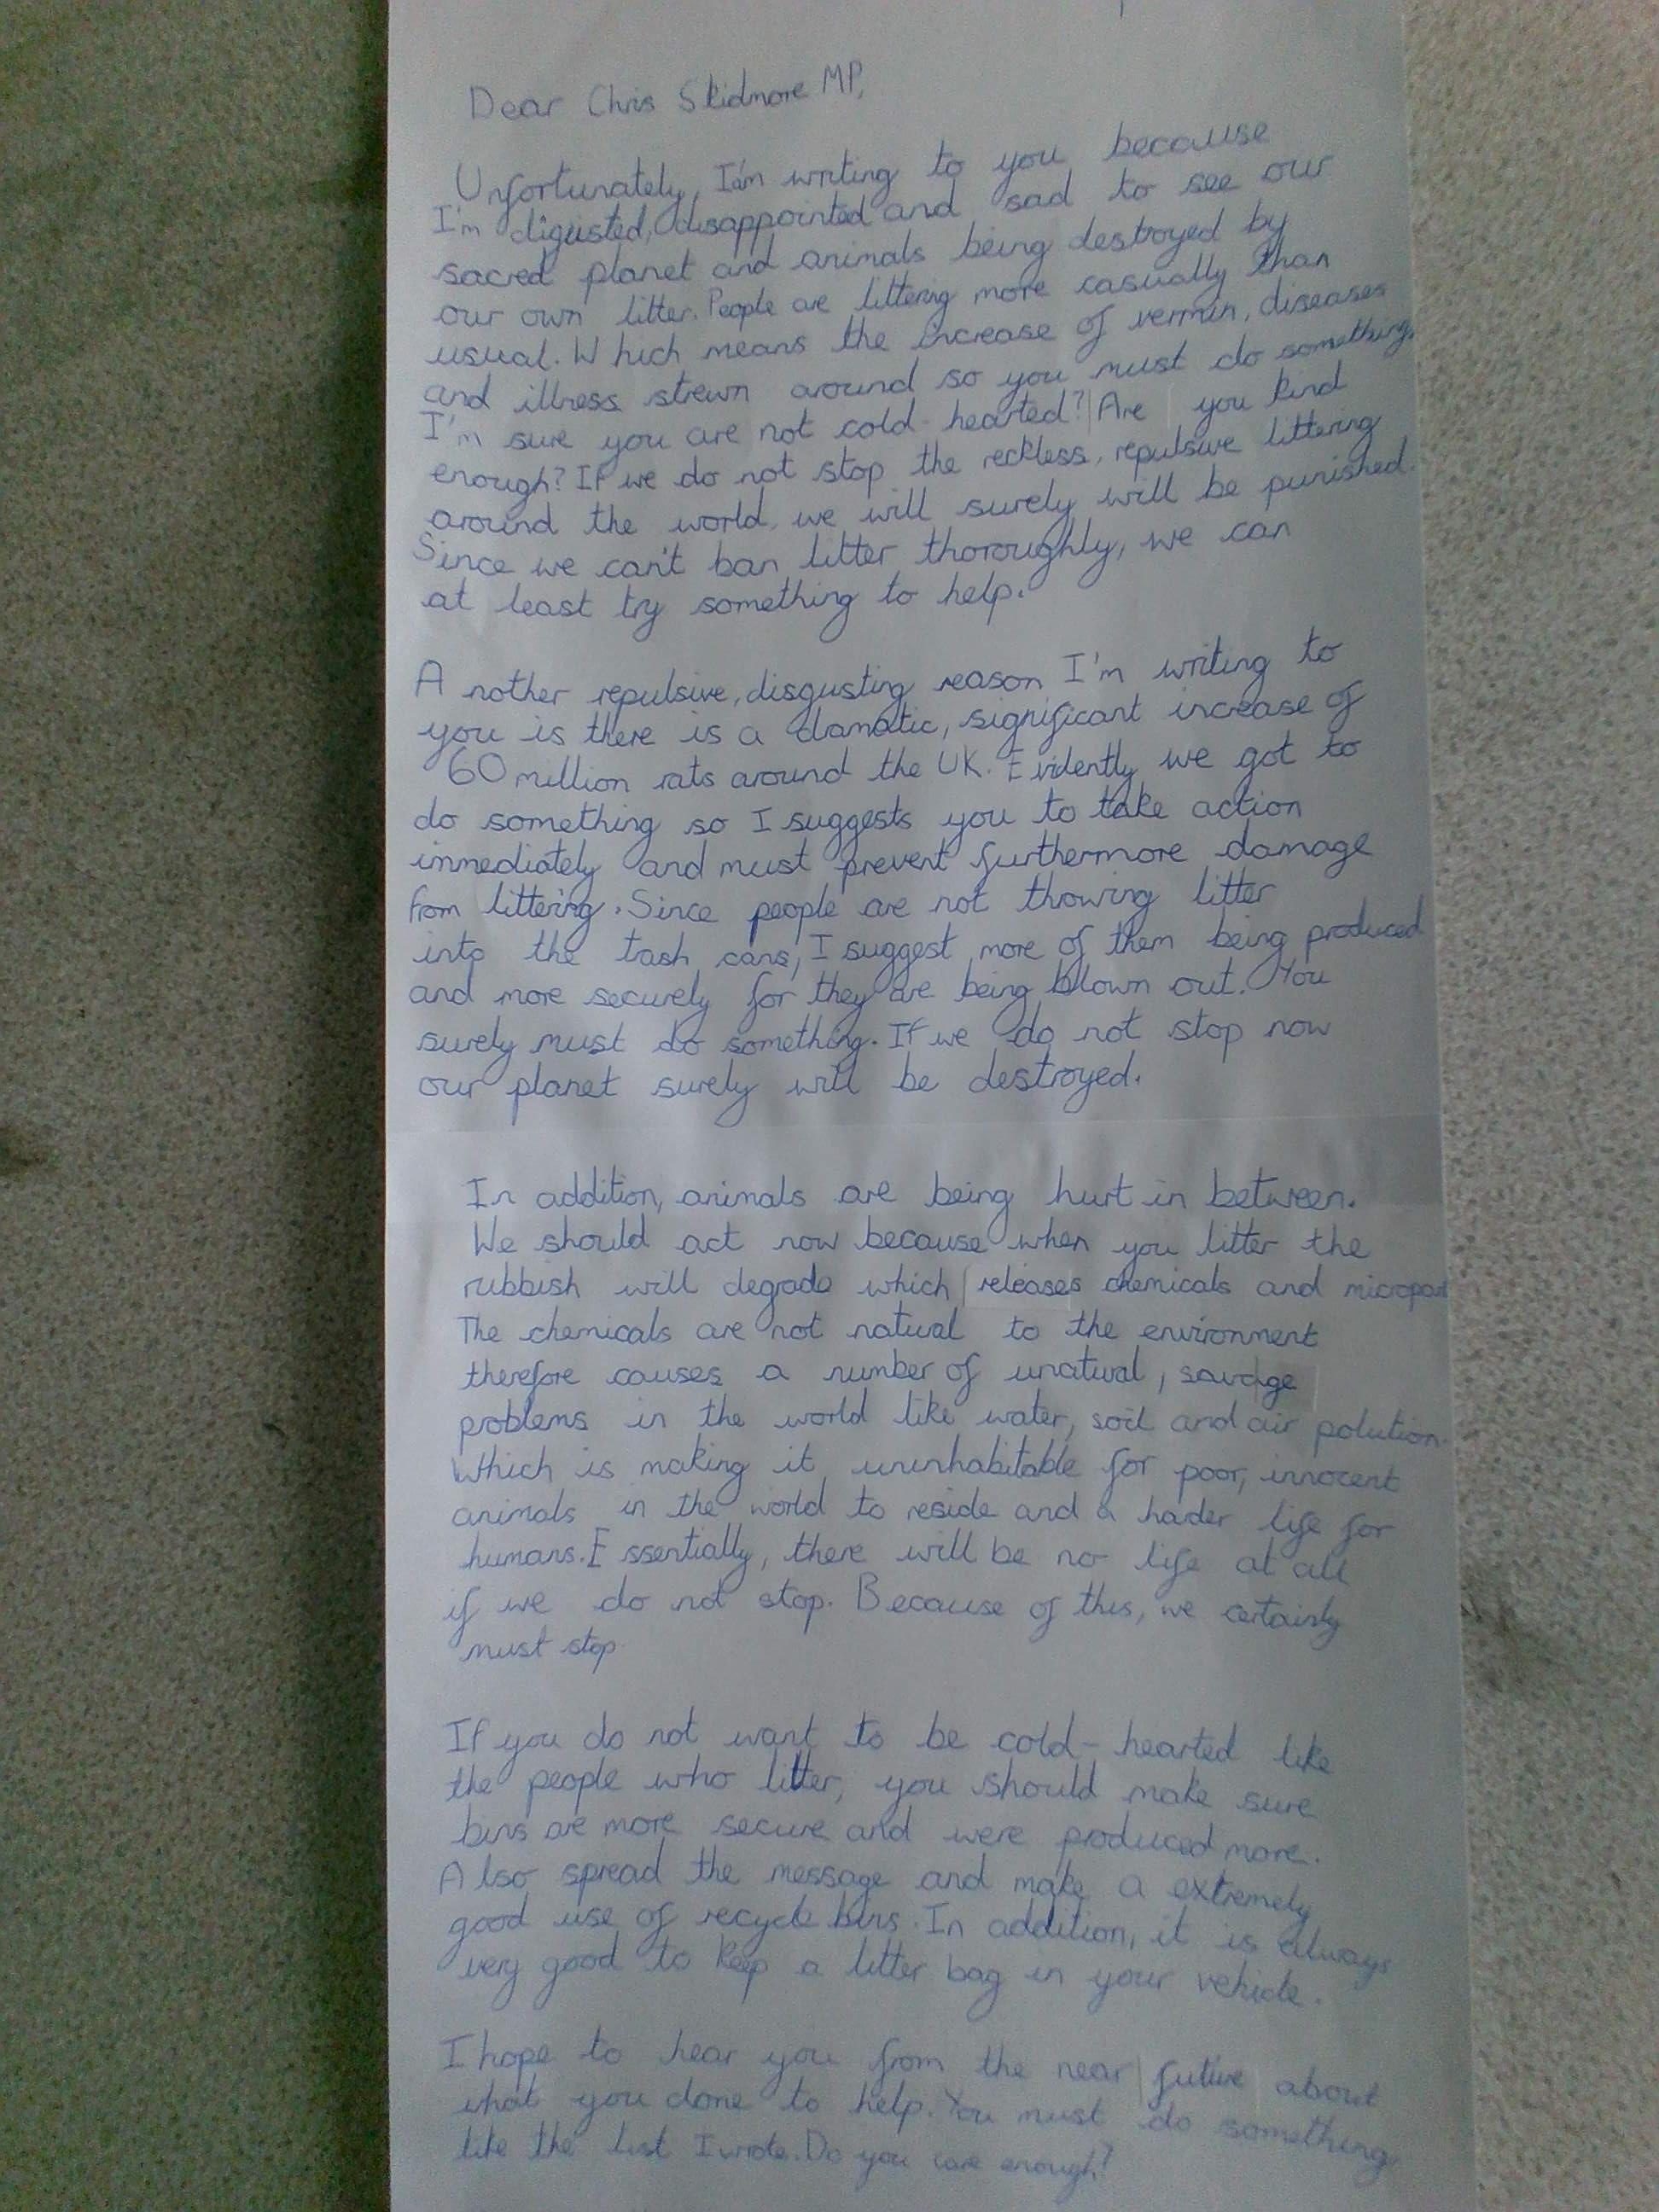 Dear Chris Skidmore MP,
Unfortunately, I'am writing to you because
I'm digusted, disappointed and sad to see our
sacred planet and animals being destroyed by
our own litter. People are littering more casually than
usual. Which means the increase of vermin, diseases
and illness strewn around so you must do something.
I'm sure you are not cold-hearted? Are you kind
enough? If we do not stop the reckless, repulsive littering
around the world, we will surely will be punished.
Since we can't ban litter thoroughly, we can
at least try something to help.
Another repulsive, disgusting reason I'm writing to
you is there is a damatic, significant increase of
60 million rats around the UK. Evidently, we got to
do something so I suggests you to take action
immediately and must prevent furthermore damage
from littering. Since people are not throwing litter
into the tash cans, I suggest more of them being produced
and more securely for they are being blown out. You
surely must do something. If we do not stop now
our planet surely will be destroyed.
In addition, animals are being hurt in between.
We should act now because when you litter the
rubbish will degrade which releases chemicals and micropart
The chemicals are not natural to the environment
therefore causes a number of unatural, savage
problems in the world like water, soil and air polution.
Which is making it uninhabitable for poor, innocent
animals in the world to reside and a harder life for
humans. Essentially, there will be no life at all
if we do not stop. Because of this, we certainly
must stop.
If you do not want to be cold-hearted like
the people who litter, you should make sure
bins are more secure and were produced more.
Also spread the message and make a extremely
good use of recycle bins. In addition, it is always
very good to keep a litter bag in your vehicle.
I hope to hear you from the near future about
what you done to help. You must do something
like the list I wrote. Do you care enough?